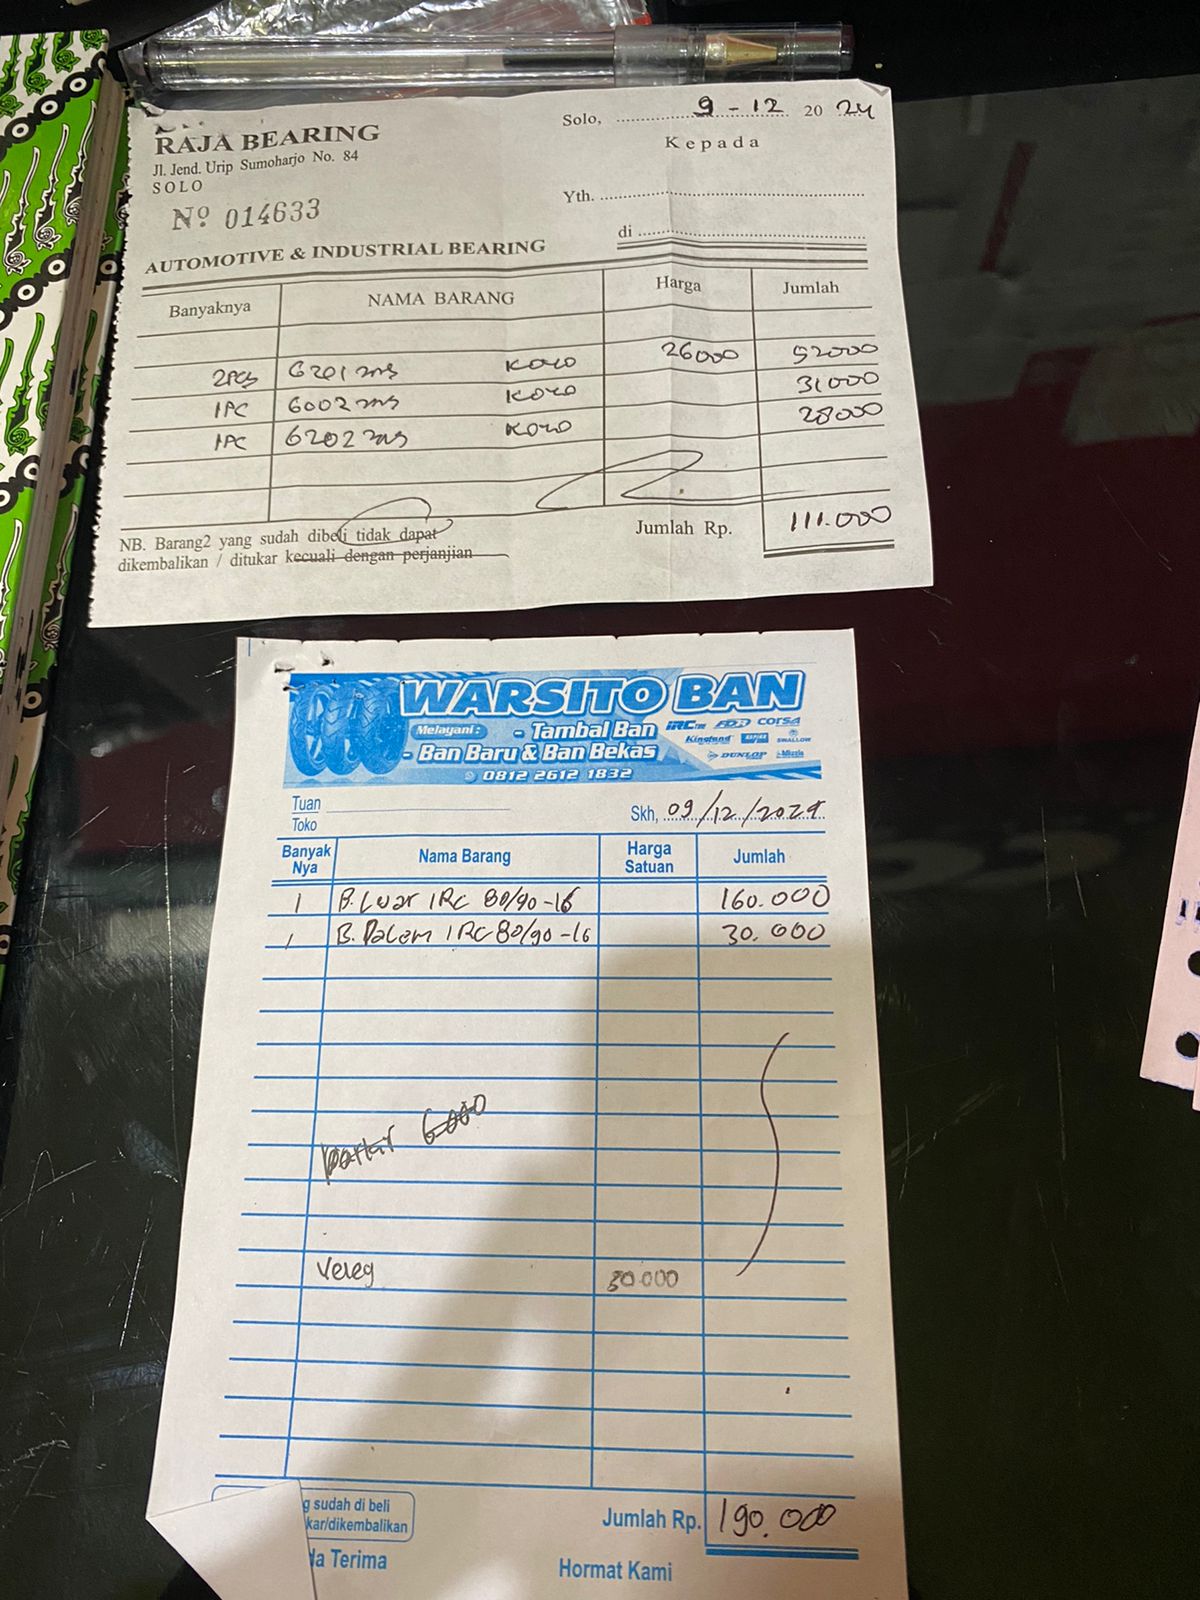 RAJA BEARING
Jl. Jend. Urip Sumoharjo No. 84
SOLO
Nº 014633
Solo, 9 - 12 20 24
Kepada
Yth.
di
AUTOMOTIVE & INDUSTRIAL BEARING
Banyaknya NAMA BARANG Harga Jumlah
2PCS 6201 2RS KOYO 26000 52000
1PC 6002 2RS KOYO 31000
1PC 6202 2RS KOYO 28000
NB. Barang2 yang sudah dibeli tidak dapat
dikembalikan / ditukar kecuali dengan perjanjian
Jumlah Rp. 111.000
WARSITO BAN
Melayani : - Tambal Ban
- Ban Baru & Ban Bekas
0812 2612 1832
IRC FDR CORSA
Kingland ASPIRA SWALLOW
DUNLOP Mizzle
Tuan
Toko
Skh, 09/12/2024
Banyak Nya Nama Barang Harga Satuan Jumlah
1 B. Luar IRC 80/90-16 160.000
1 B. Dalam IRC 80/90-16 30.000
6000
Veleg 30.000
g sudah di beli
kar/dikembalikan
Jumlah Rp. 190.000
da Terima
Hormat Kami